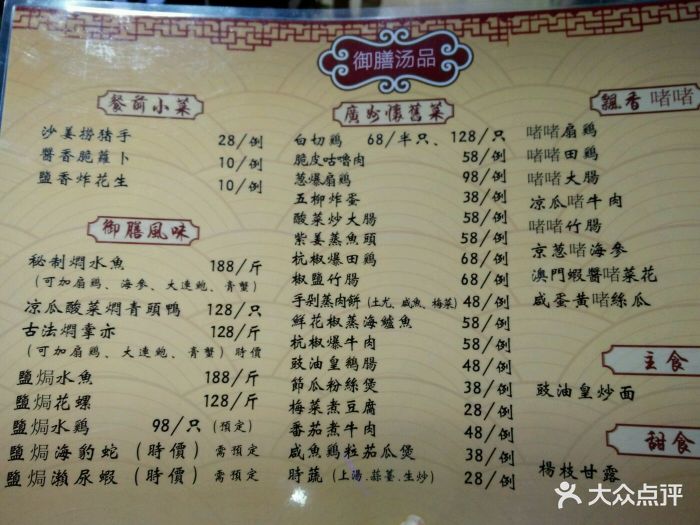 御膳汤品
餐前小菜
沙姜捞猪手 28/例
醬香脆蘿卜 10/例
鹽香炸花生 10/例
御膳風味
秘制燜水魚 188/斤
(可加扇鷄、海參、大連鮑、青蟹)
凉瓜酸菜燜青頭鴨 128/只
古法燜掌亦 128/斤
(可加扇鷄、大連鮑、青蟹)時價
鹽焗水魚 188/斤
鹽焗花螺 128/斤
鹽焗水鷄 98/只(預定)
鹽焗海豹蛇(時價)需預定
鹽焗瀨尿蝦(時價)需預定
廣州懷舊菜
白切鷄 68/半只、128/只
脆皮咕嚕肉 58/例
葱爆扇鷄 98/例
五柳炸蛋 38/例
酸菜炒大腸 58/例
紫姜蒸魚頭 58/例
杭椒爆田鷄 68/例
椒鹽竹腸 68/例
手剁蒸肉餅(土尤、咸魚、梅菜) 48/例
鮮花椒蒸海鱸魚 58/例
杭椒爆牛肉 58/例
豉油皇鵝腸 48/例
節瓜粉絲煲 38/例
梅菜煮豆腐 28/例
番茄煮牛肉 48/例
咸魚鷄粒茄瓜煲 38/例
時蔬(上湯.蒜蓉.生炒) 28/例
飄香啫啫
啫啫扇鷄
啫啫田鷄
啫啫大腸
凉瓜啫牛肉
啫啫竹腸
京葱啫海參
澳門蝦醬啫菜花
咸蛋黄啫絲瓜
主食
豉油皇炒面
甜食
楊枝甘露
大众点评